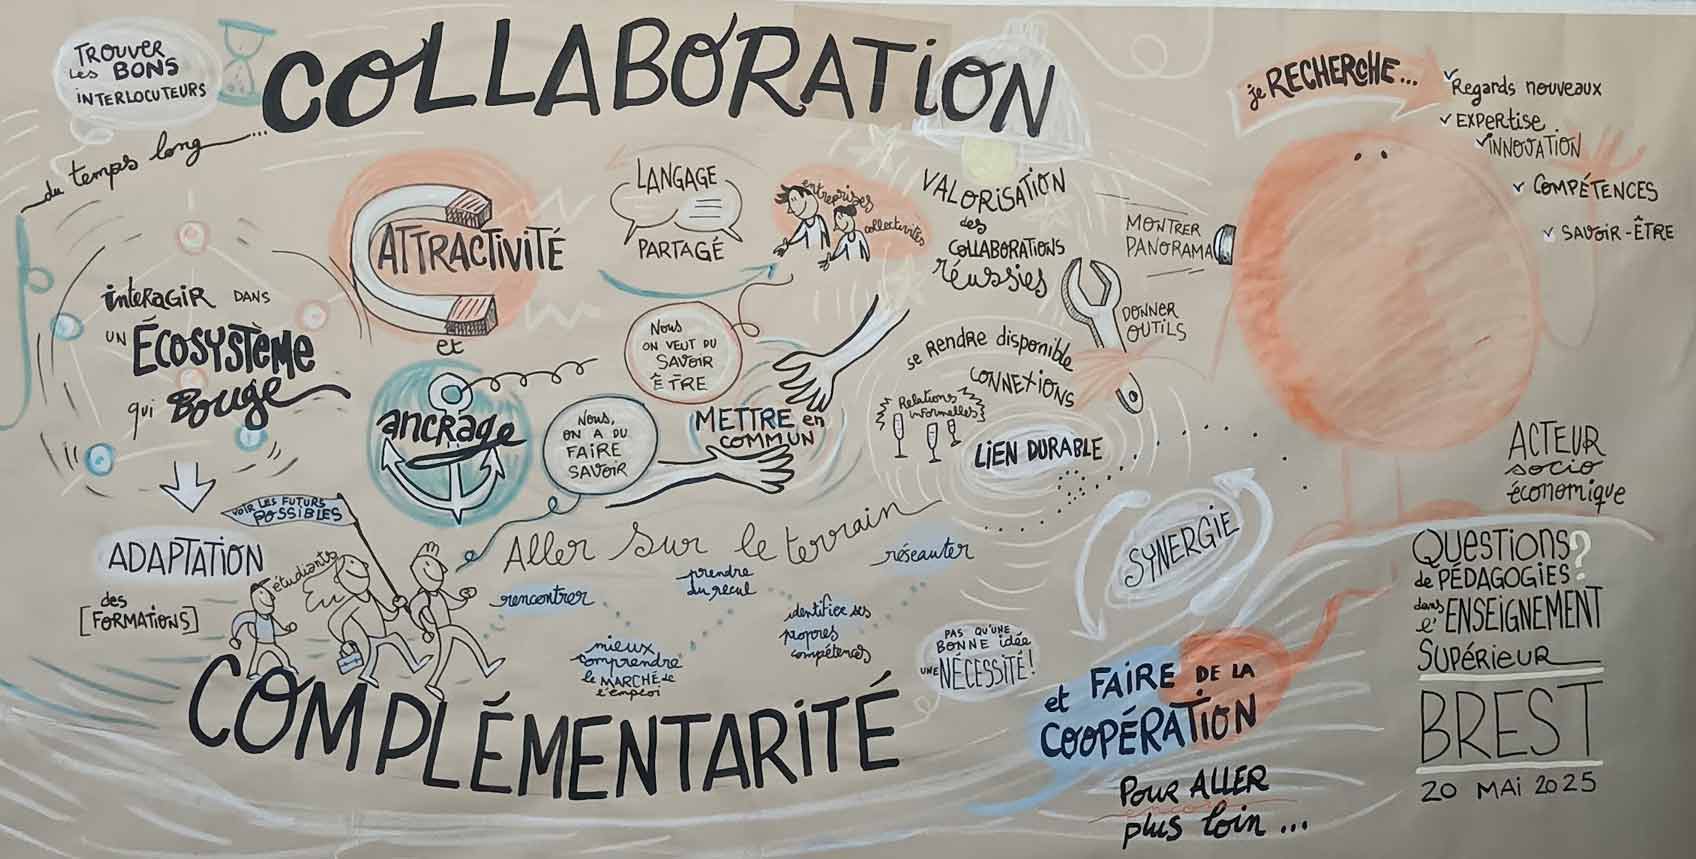 COLLABORATION
TROUVER
Les BONS
iNTERLOCUTEURS
du temps long...
ATTRACTiViTÉ
et
ancrage
interagir DANS
UN ÉCOSYSTÈME
qui Bouge
ADAPTATION
des
[FORMATIONS]
VOIR LES FUTURS
POSSIBLES
étudiants
LANGAGE
PARTAGÉ
entreprises
collectivités
Nous
ON VEUT DU
SAVOIR
ÊTRE
Nous,
ON A DU
FAIRE
SAVOIR
METTRE en
COMMUN
VALORiSATiON
des
COLLABORATIONS
réussies
se Rendre disponible
CONNEXIONS
Relations
informelles
LIEN DURABLE
Aller sur le terrain
rencontrer
mieux
comprendre
le MARCHÉ de
l'emploi
prendre
du recul
identifier ses
propres
compétences
réseauter
COMPLÉMENTARiTÉ
PAS QU'UNE
BONNE idée
UNE NÉCESSITÉ!
SYNERGIE
et FAIRE DE LA
COOPÉRATION
Pour ALLER
plus loin...
je RECHERCHE...
Regards nouveaux
EXPERTISE
INNOVATION
COMPÉTENCES
SAVOIR-ÊTRE
MONTRER
PANORAMA
DONNER
OUTILS
ACTEUR
socio
économique
QUESTIONS?
de PÉDAGOGIES
dans
l'ENSEiGNEMENT
SUPÉRiEUR
BREST
20 MAi 2025